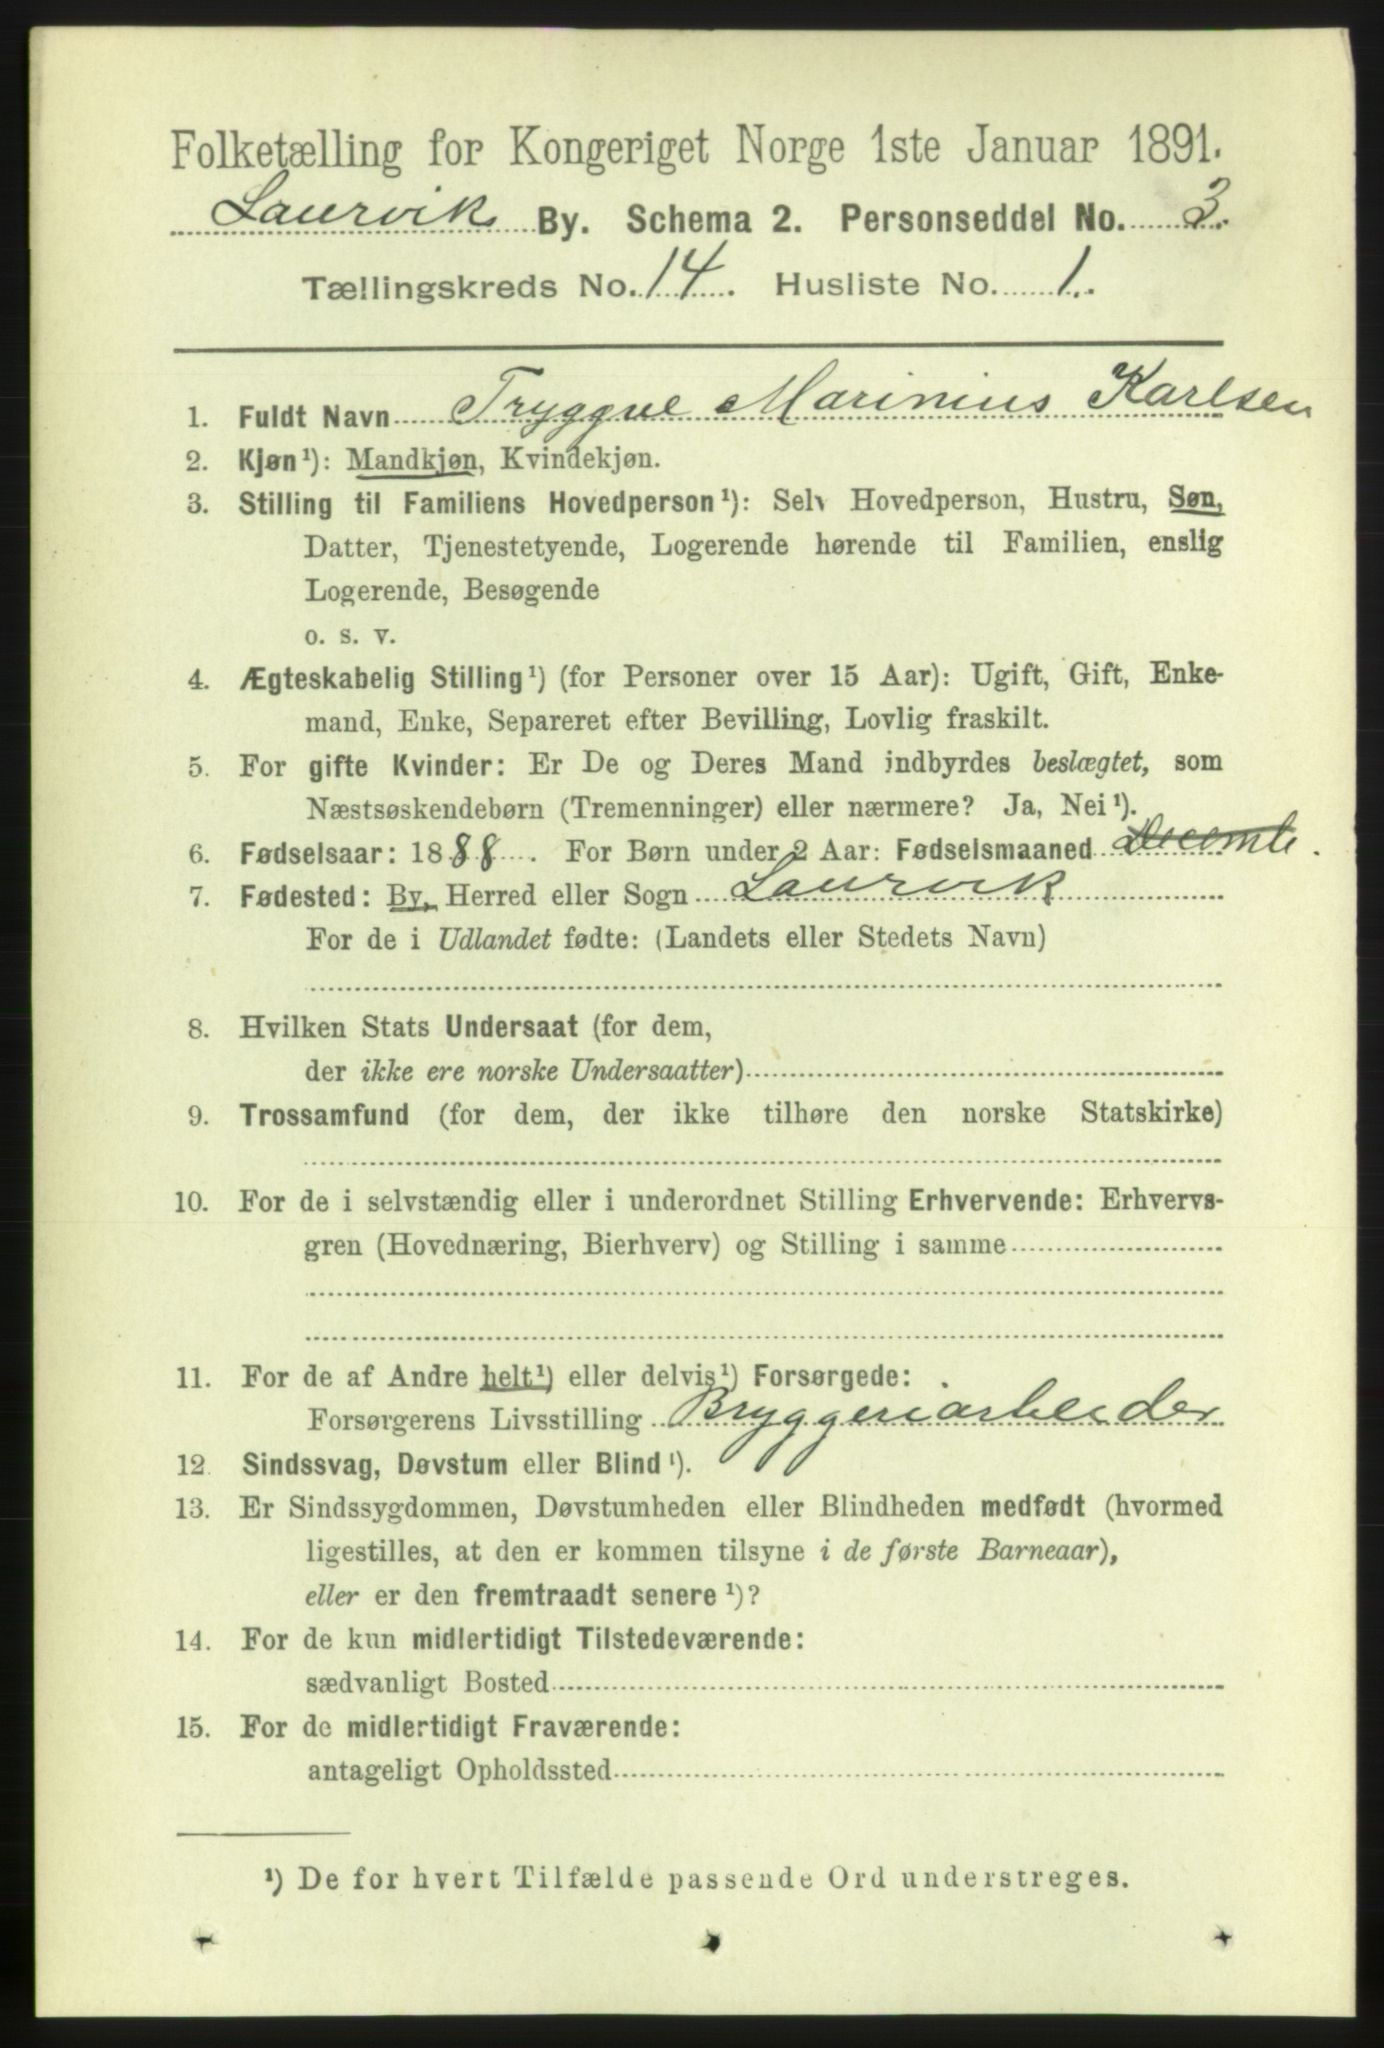 Folketælling for Kongeriget Norge 1ste Januar 1891.
Laurvik By. Schema 2. Personseddel No. 3.
Tællingskreds No. 14. Husliste No. 1.
1. Fuldt Navn Tryggve Marinius Karlsen
2. Kjøn¹): Mandkjøn, Kvindekjøn.
3. Stilling til Familiens Hovedperson¹): Selv Hovedperson, Hustru, Søn,
Datter, Tjenestetyende, Logerende hørende til Familien, enslig
Logerende, Besøgende
o. s. v.
4. Ægteskabelig Stilling¹) (for Personer over 15 Aar): Ugift, Gift, Enke-
mand, Enke, Separeret efter Bevilling, Lovlig fraskilt.
5. For gifte Kvinder: Er De og Deres Mand indbyrdes beslægtet, som
Næstsøskendebørn (Tremenninger) eller nærmere? Ja, Nei¹).
6. Fødselsaar: 1888. For Børn under 2 Aar: Fødselsmaaned Decemb.
7. Fødested: By, Herred eller Sogn Laurvik
For de i Udlandet fødte: (Landets eller Stedets Navn)
8. Hvilken Stats Undersaat (for dem,
der ikke ere norske Undersaatter)
9. Trossamfund (for dem, der ikke tilhøre den norske Statskirke)
10. For de i selvstændig eller i underordnet Stilling Erhvervende: Erhvervs-
gren (Hovednæring, Bierhverv) og Stilling i samme
11. For de af Andre helt¹) eller delvis¹) Forsørgede:
Forsørgerens Livsstilling Bryggeriarbeider
12. Sindssvag, Døvstum eller Blind¹).
13. Er Sindssygdommen, Døvstumheden eller Blindheden medfødt (hvormed
ligestilles, at den er kommen tilsyne i de første Barneaar),
eller er den fremtraadt senere¹)?
14. For de kun midlertidigt Tilstedeværende:
sædvanligt Bosted
15. For de midlertidigt Fraværende:
antageligt Opholdssted
¹) De for hvert Tilfælde passende Ord understreges.